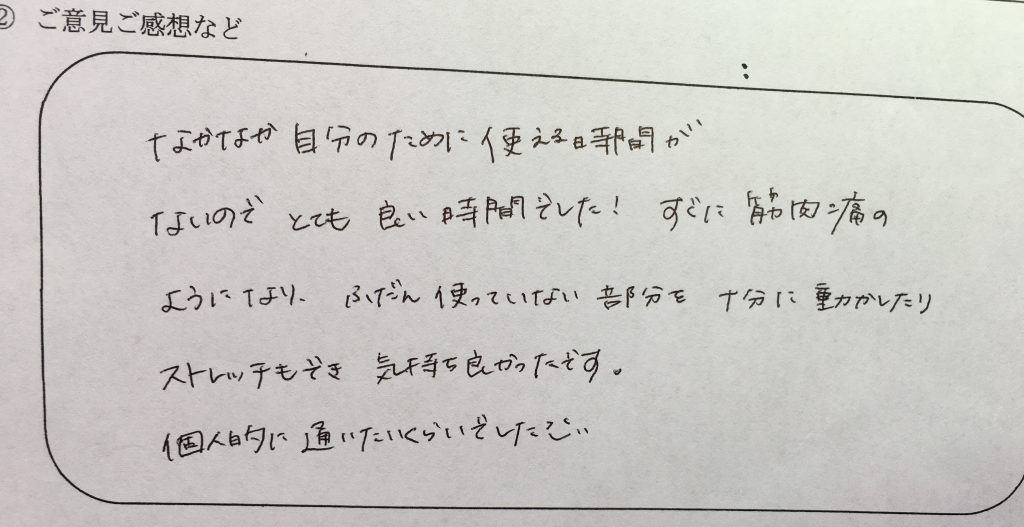 ② ご意見ご感想など
なかなか自分のために使える時間が
ないので とても 良い時間でした! すぐに筋肉痛の
ようになり、ふだん使っていない部分を 十分に動かしたり
ストレッチもでき 気持ち良かったです。
個人的に通いたいくらいでした